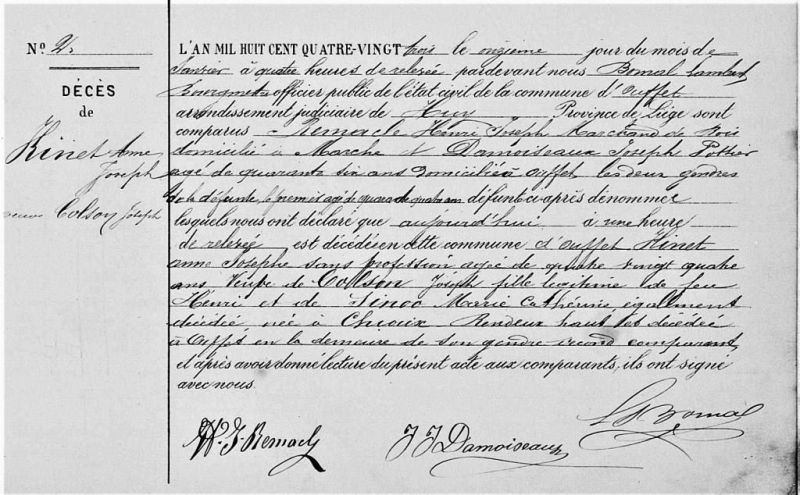 N.º 2.
DÉCÈS
de
Kinet Anne
Joseph
veuve Colson Joseph
L'AN MIL HUIT CENT QUATRE-VINGT trois le onzième jour du mois de
Janvier à quatre heures de relevée pardevant nous Bomal Lambert
Bourgmestre officier public de l'état civil de la commune d'Ouffet
arrondissement judiciaire de Huy Province de Liège sont
comparus Remacle Henri Joseph Marchand de bois
domicilié à Marche et Damoiseaux Joseph Pottier
agé de quarante six ans domicilié à Ouffet, les deux gendres
de la défunte, le premier agé de quarante quatre ans défunt ci-après dénommer
lesquels nous ont déclaré que aujourd'hui à une heure
de relevée est décédé en cette commune d'Ouffet Kinet
Anne Josephe sans profession agée de quatre vingt quatre
ans Veuve de Colson Joseph fille légitime de feu
Henri et de Marie Cathérine également
décédée née à Rendeux haut et décédée
à Ouffet en la demeure de son gendre second comparant,
et après avoir donné lecture du présent acte aux comparants, ils ont signé
avec nous.
H. J. Remacle
J J Damoiseaux
L Bomal